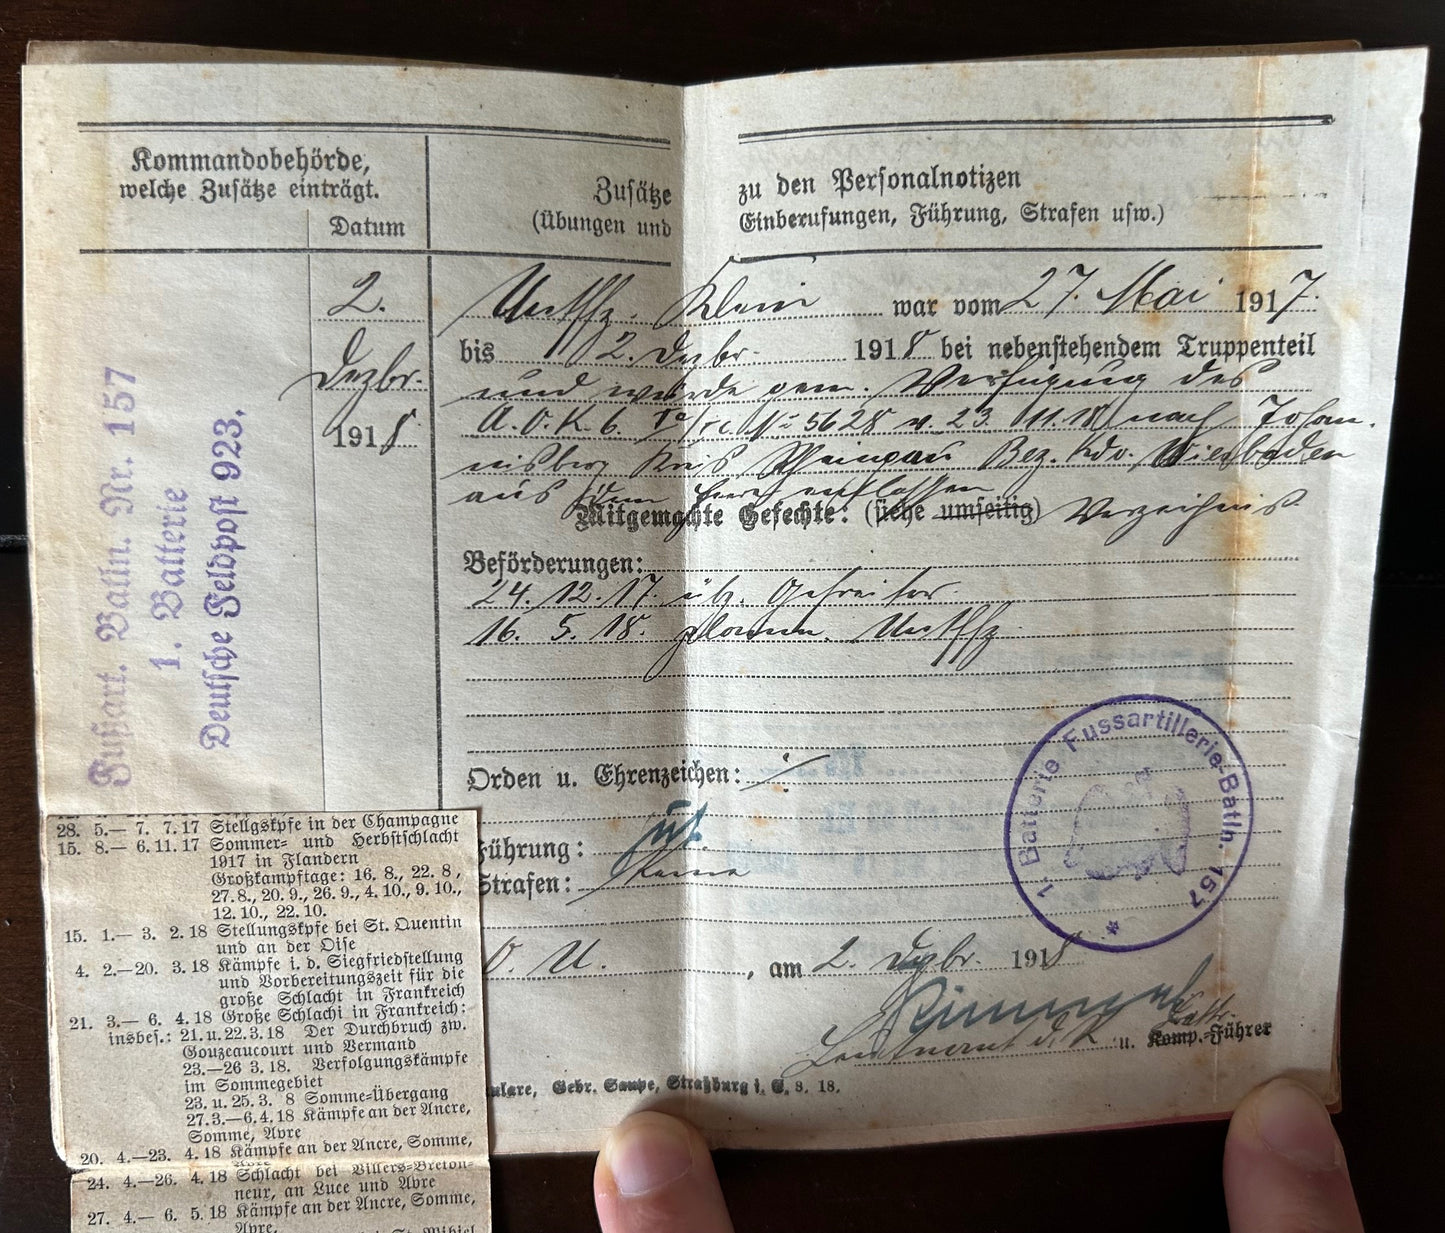 Kommandobehörde,
welche Zusätze einträgt.
Datum
Fußart. Batln. Nr. 157
1. Batterie
Deutsche Feldpost 923.
2.
Dezbr.
1918
Zusätze zu den Personalnotizen
(Übungen und Einberufungen, Führung, Strafen usw.)
Untffz. Klein war vom 27. Mai 1917.
bis 2. Dezbr. 1918 bei nebenstehendem Truppenteil
und wurde gem. Verfügung des
A.O.K. 6. Ia/Ic No 5628 v. 23. 11. 18 nach Johan-
nisberg Kreis Rheingau Bez. Kdo. Wiesbaden
aus dem Heere entlassen
Mitgemachte Gefechte: (siehe umseitig) Verzeichnis.
Beförderungen:
24. 12. 17. üb. Gefreiter.
16. 5. 18. Untffz.
Orden u. Ehrenzeichen: ./.
Führung: gut.
Strafen: Keine
O. U. , am 2. Dezbr. 1918
Leutnant d. R. u. Battr. Komp.-Führer
ulare, Gebr. Saupe, Straßburg i. E. 8. 18.
1. Batterie Fussartillerie-Batln. 157 *
28. 5.— 7. 7. 17 Stellgskpfe in der Champagne
15. 8.— 6. 11. 17 Sommer- und Herbstschlacht
1917 in Flandern
Großkampftage: 16. 8., 22. 8,
27. 8., 20. 9., 26. 9., 4. 10., 9. 10.,
12. 10., 22. 10.
15. 1.— 3. 2. 18 Stellungskpfe bei St. Quentin
und an der Oise
4. 2.—20. 3. 18 Kämpfe i. d. Siegfriedstellung
und Vorbereitungszeit für die
große Schlacht in Frankreich
21. 3.— 6. 4. 18 Große Schlacht in Frankreich:
insbes.: 21. u. 22. 3. 18 Der Durchbruch zw.
Gouzeaucourt und Vermand
23.—26 3. 18. Verfolgungskämpfe
im Sommegebiet
23. u. 25. 3. 8 Somme-Übergang
27. 3.—6. 4. 18 Kämpfe an der Ancre,
Somme, Avre
20. 4.—23. 4. 18 Kämpfe an der Ancre, Somme,
Avre
24. 4.—26. 4. 18 Schlacht bei Villers-Breton-
neux, an Luce und Avre
27. 4.— 6. 5. 18 Kämpfe an der Ancre, Somme,
Avre,
St. Mihiel